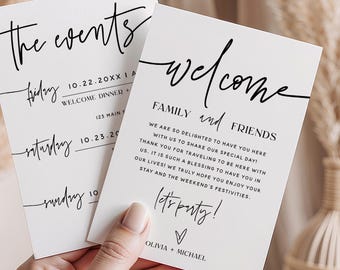 the events
friday
10.22.20XX |
WELCOME DINNER
123 MAIN
saturday
10.23.20
sunday
10.
welcome
FAMILY and FRIENDS
WE ARE SO DELIGHTED TO HAVE YOU HERE
WITH US TO SHARE OUR SPECIAL DAY!
THANK YOU FOR TRAVELING TO BE HERE WITH
US. IT IS SUCH A BLESSING TO HAVE YOU IN
OUR LIVES! WE TRULY HOPE YOU ENJOY YOUR
STAY AND THE WEEKEND'S FESTIVITIES.
let's party!
OLIVIA + MICHAEL